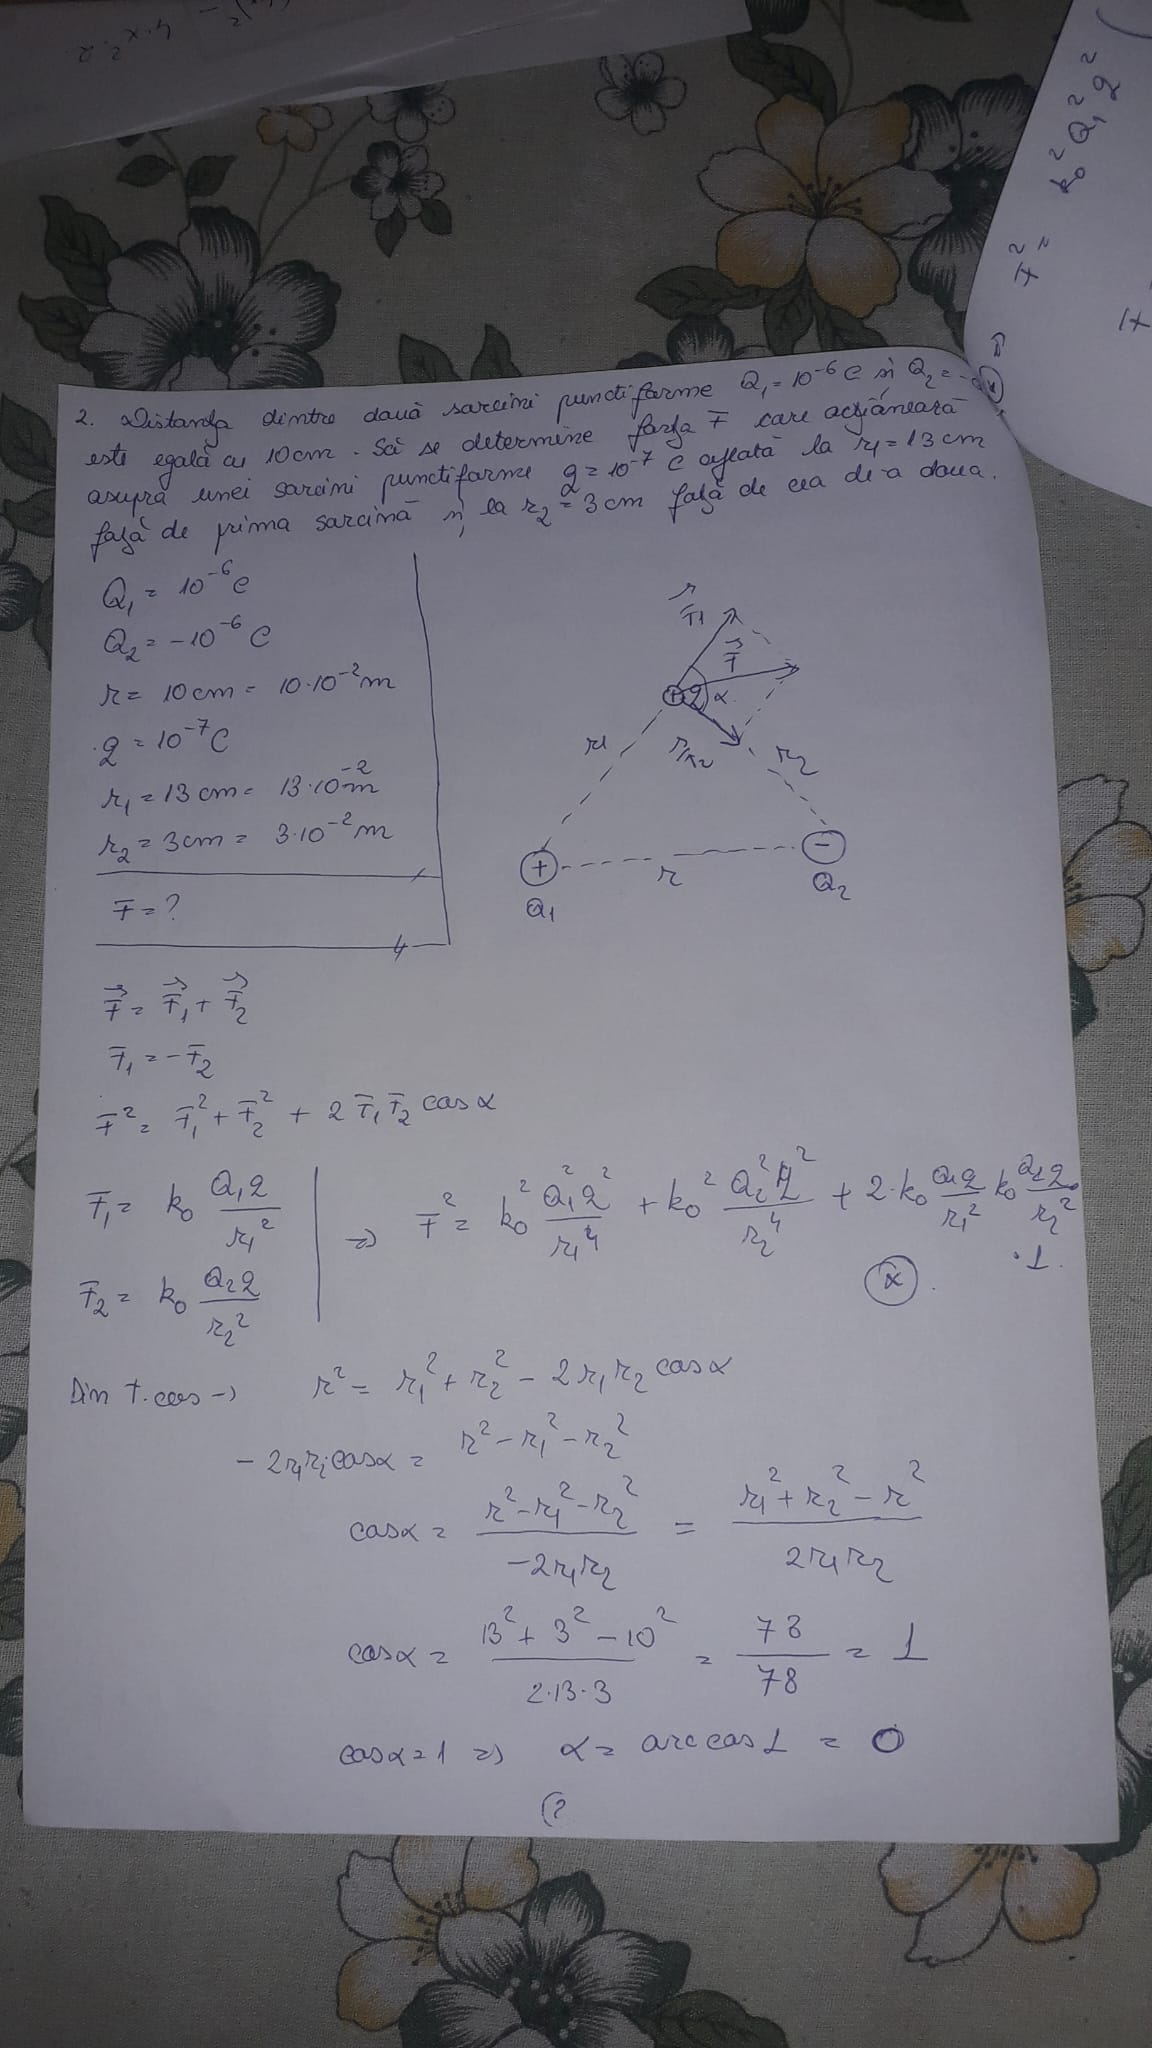 2. Distanţa dintre două sarcini punctiforme Q₁ = 10⁻⁶ C şi Q₂ = -
este egală cu 10cm. Să se determine forţa F care acţionează
asupra unei sarcini punctiforme q = 10⁻⁷ C aflată la r₁ = 13 cm
faţă de prima sarcină şi la r₂ = 3 cm faţă de cea de-a doua.
Q₁ = 10⁻⁶ C
Q₂ = -10⁻⁶ C
r = 10cm = 10·10⁻² m
q = 10⁻⁷ C
r₁ = 13 cm = 13·10⁻² m
r₂ = 3cm = 3·10⁻² m
F = ?
F⃗₁
F⃗
+ q α
F⃗₂
r₁
r₂
+
r
-
Q₁
Q₂
F⃗ = F⃗₁ + F⃗₂
F₁ = -F₂
F² = F₁² + F₂² + 2 F₁ F₂ cos α
F₁ = k₀ Q₁q / r₁²
F₂ = k₀ Q₂q / r₂²
=> F² = k₀² Q₁²q² / r₁⁴ + k₀² Q₂²q² / r₂⁴ + 2·k₀ Q₁q / r₁² k₀ Q₂q / r₂² · 1.
Din T. cos → r² = r₁² + r₂² - 2r₁r₂ cos α
- 2r₁r₂ cos α = r² - r₁² - r₂²
cos α = (r² - r₁² - r₂²) / (-2r₁r₂) = (r₁² + r₂² - r²) / (2r₁r₂)
cos α = (13² + 3² - 10²) / (2·13·3) = 78 / 78 = 1
cos α = 1 => α = arccos 1 = 0
(?
F² = k₀² Q₁² q² (
F